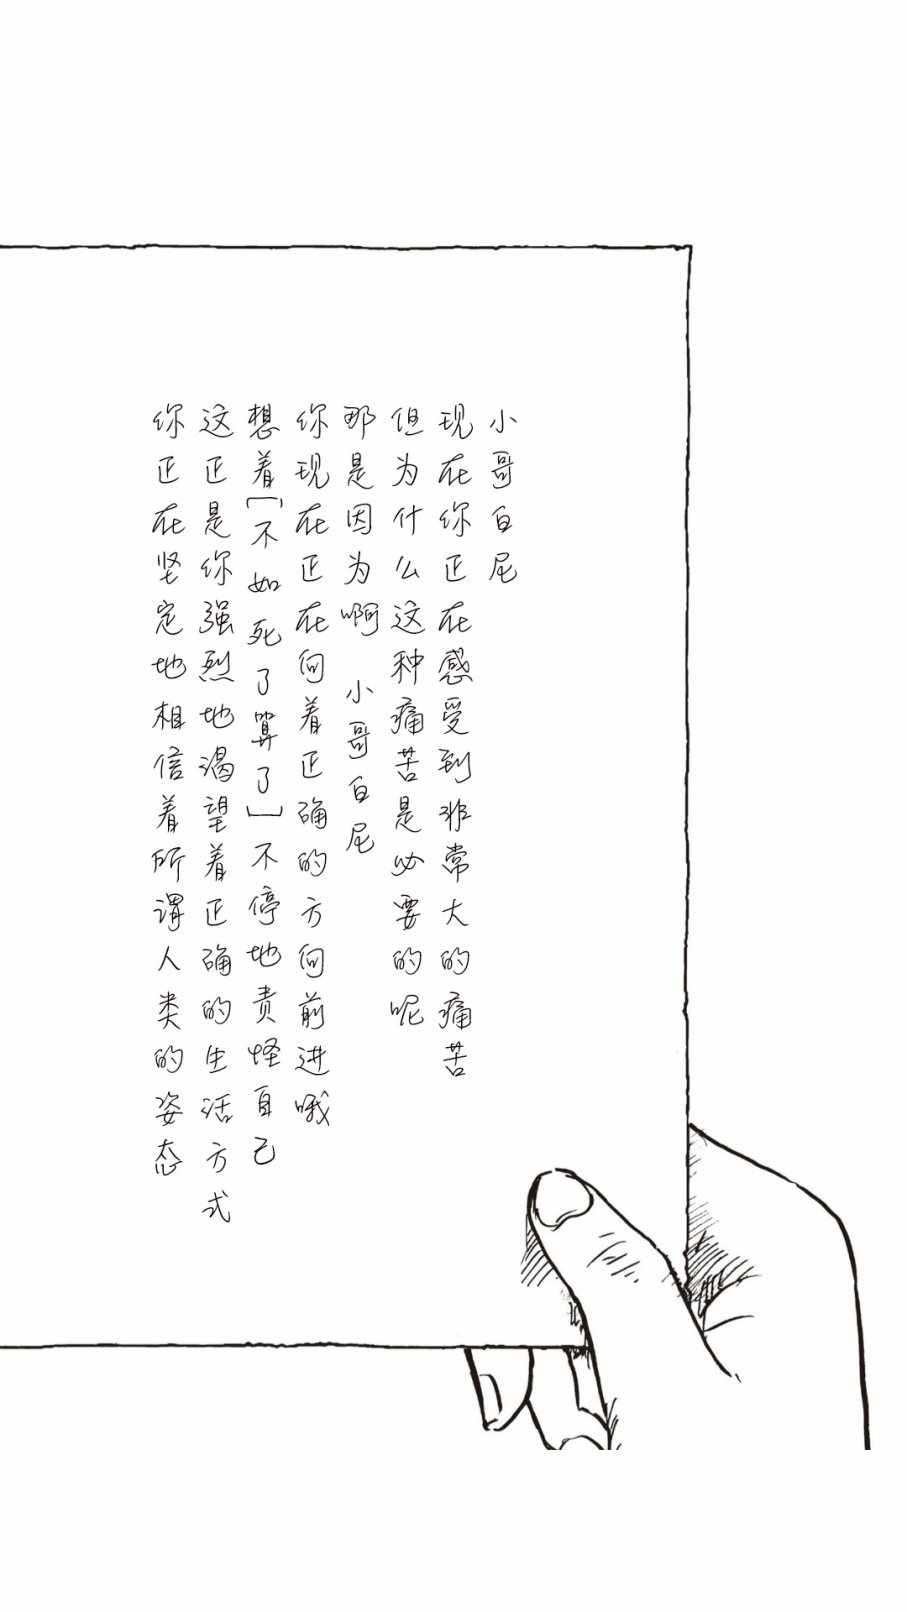 小哥白尼
现在你正在感受到非常大的痛苦
但为什么这种痛苦是必要的呢
那是因为啊 小哥白尼
你现在正在向着正确的方向前进哦
想着[不如死了算了]不停地责怪自己
这正是你强烈地渴望着正确的生活方式
你正在坚定地相信着所谓人类的姿态